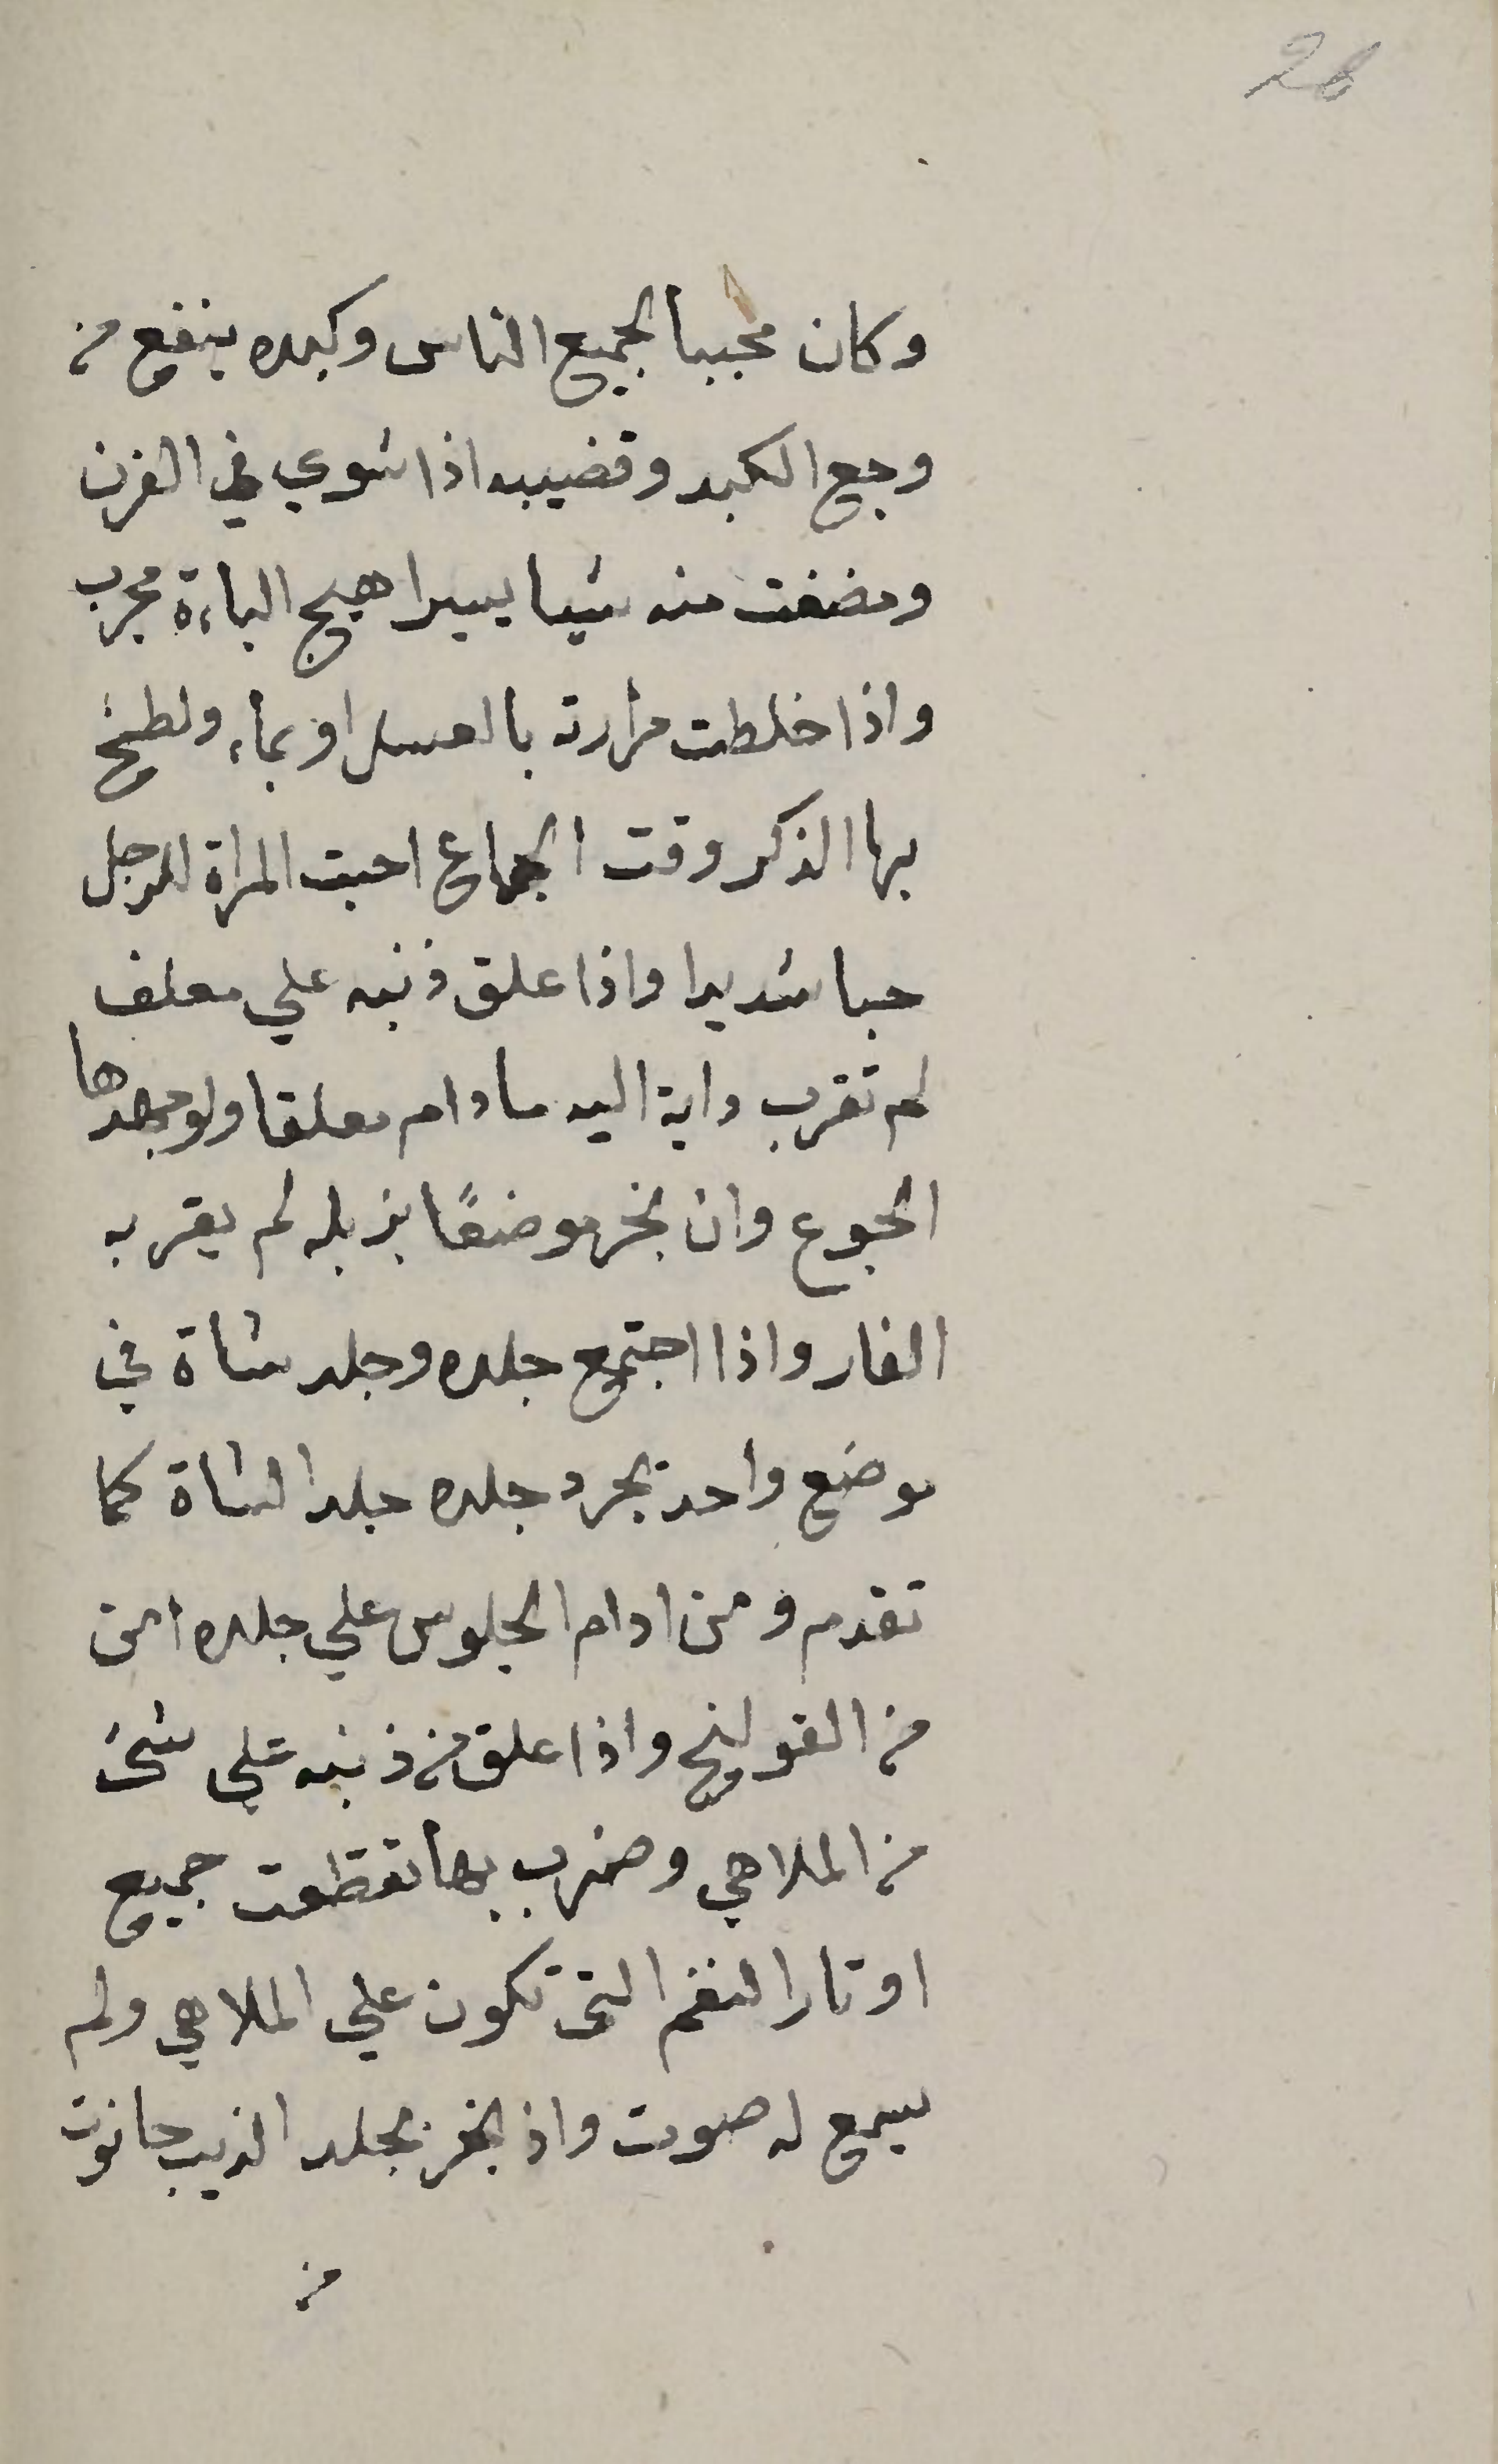 26
وكان محببا لجميع الناس وكبده ينفع من
وجع الكبد وقضيبه اذا شوي في الفرن
ومضغت منه شيا يسيرا هيج الباءة مجرب
واذا خلطت مرارته بالعسل او بماء ولطخ
بها الذكر وقت الجماع احبت المراة للرجل
حبا شديدا واذا علق ذنبه علي معلف
لم تقرب دابة اليه ما دام معلقا ولو جهدها
الجوع وان بخر موضعًا بزبله لم يقربه
الفار واذا اجتمع جلده وجلد شاة في
موضع واحد تجرد جلده جلد الشاة كما
تقدم ومن ادام الجلوس علي جلده امن
من القولنج واذا علق من ذنبه علي شئ
من الملاهي وضرب بها تقطعت جميع
اوتار النغم التى تكون علي الملاهي ولم
يسمع له صوت واذ بخر بجلد الذيب حانوت
من